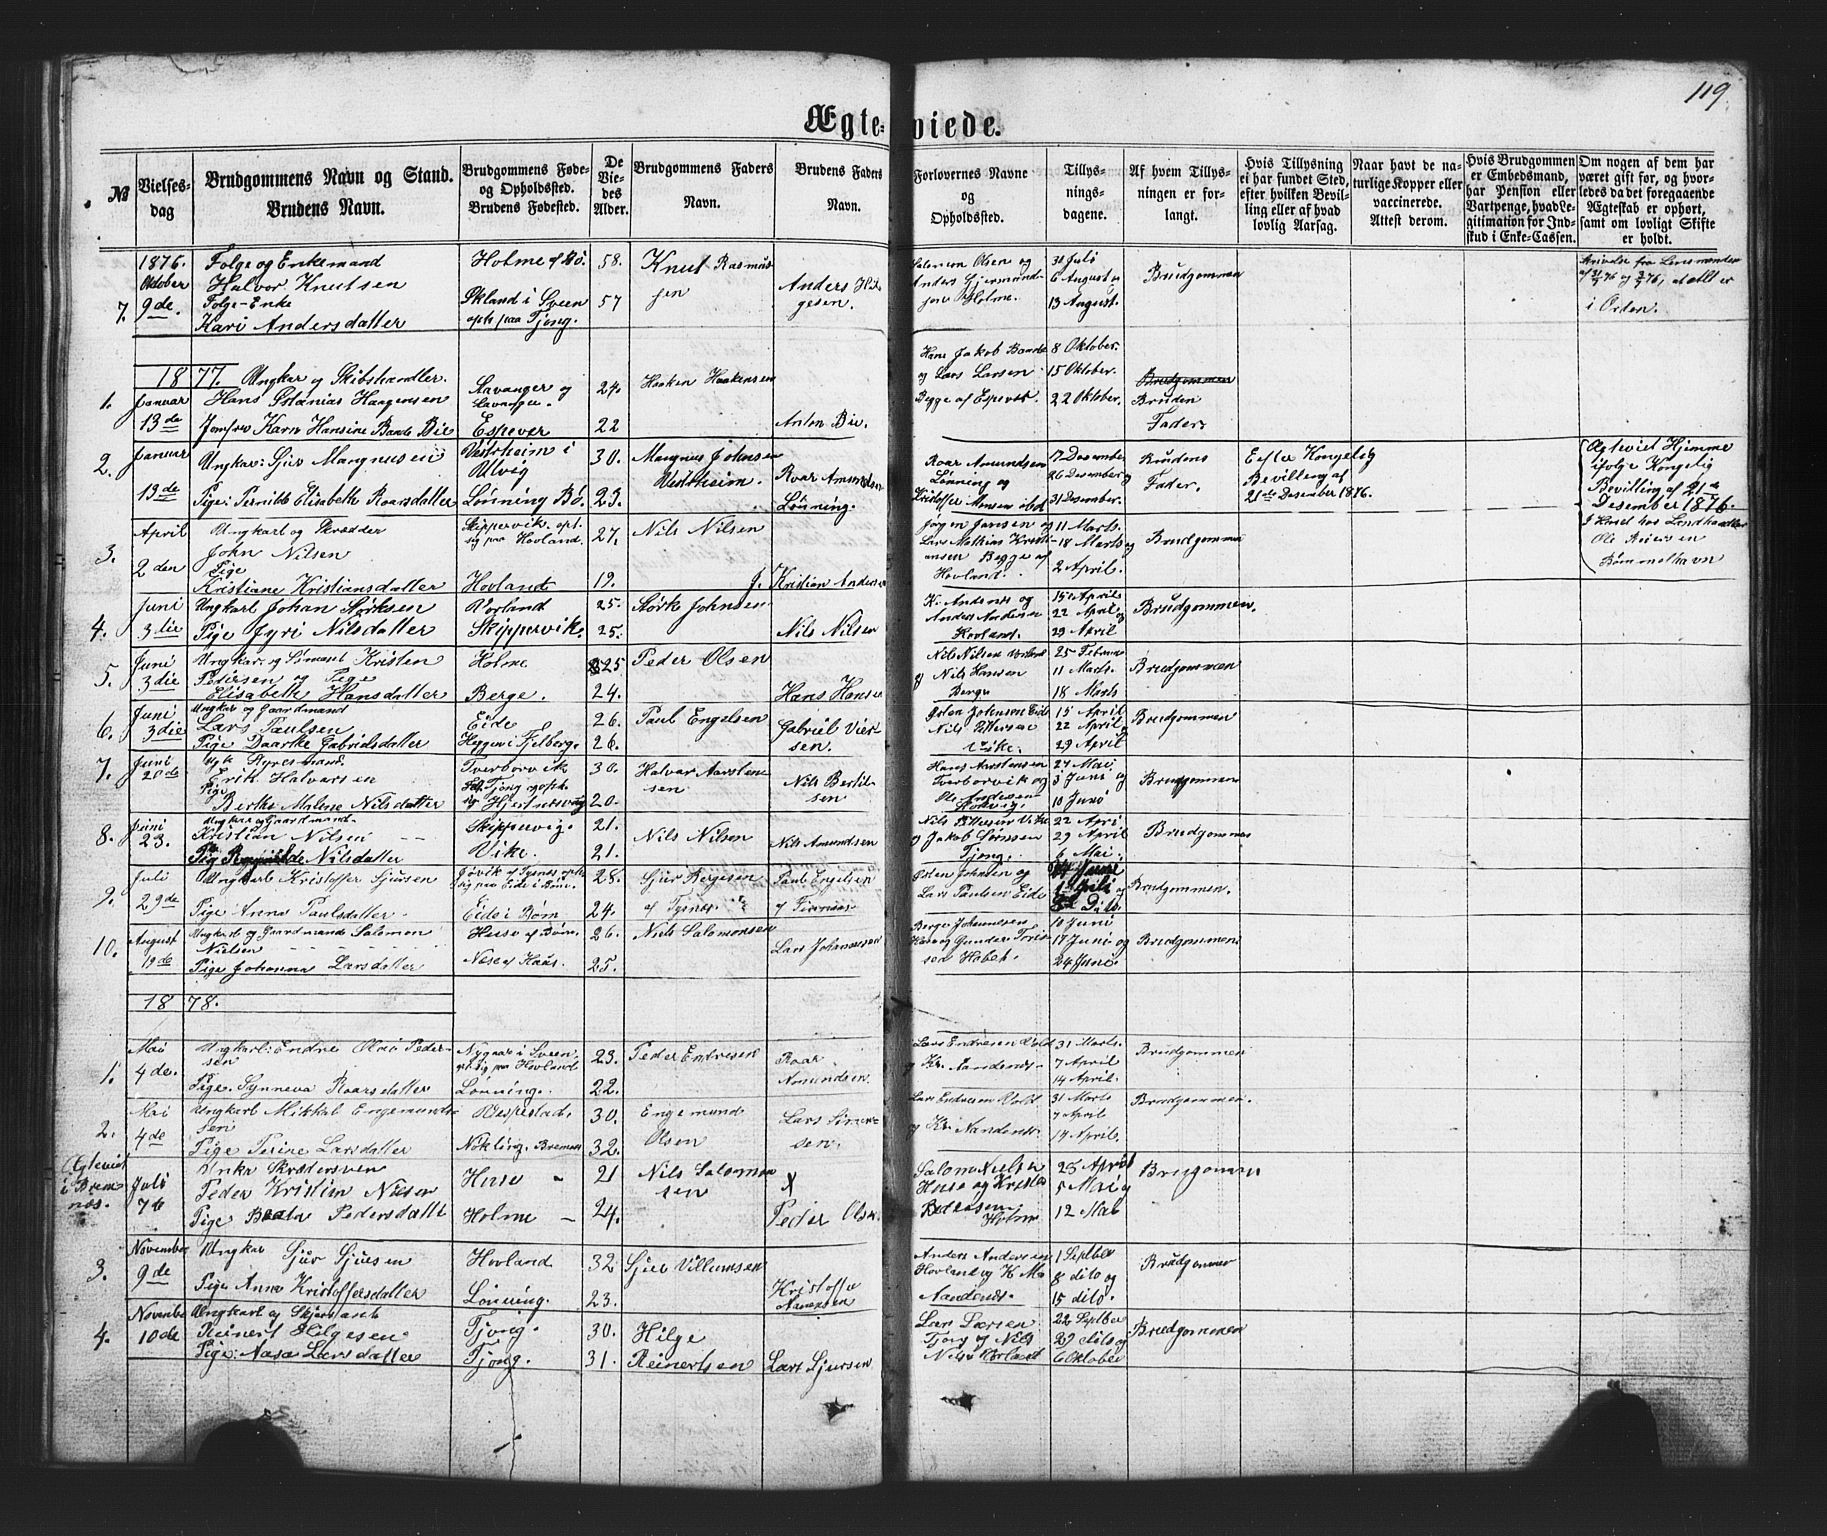 119
Ægteviede.
№
Vielses-
dag
Brudgommens Navn og Stand.
Brudens Navn.
Brudgommens Føde-
og Opholdssted.
Brudens Fødested.
De
Vie-
des
Alder.
Brudgommens Faders
Navn.
Brudens Faders
Navn.
Forlovernes Navne
og
Opholdssted.
Tillys-
nings-
dagene.
Af hvem Tillys-
ningen er for-
langt.
Hvis Tillysning
ei har fundet Sted,
efter hvilken Bevil-
ling eller af hvad
lovlig Aarsag.
Naar havt de na-
turlige Kopper eller
vaccinerede.
Attest derom.
Hvis Brudgommen
er Embedsmand,
har Pension eller
Vartpenge, hvad Le-
gitimation for Ind-
skud i Enke-Cassen.
Om nogen af dem har
været gift før, og hvor-
ledes da det foregaaende
Ægteskab er ophørt,
samt om lovligt Skifte
er holdt.
7.
1876.
Oktober
9de.
Følge og Enkemand
Halvor Knutsen
Følge-Enke
Kari Andersdatter
Holme af Bø
Økland i Sveen
oph paa Tjong.
58.
57
Knut Rasmus
sen
Anders Hel
gesen.
Salomon Olsen og
Anders Gjermund
sen Holme.
30 Juli
6 August og
13 August.
Brudgommen
i Orden.
1877.
1.
Januar
13de
Ungkar og Skibshandler.
Hans Haagensen
Jomfru Karn Hansine Baade Bie
Stavanger og
Espevær
24.
22
Haaken Haakensen
Anton Bie.
Hans Jakob Baade
og Lars Larsen
Begge af Espevær.
8 Oktober.
15 Oktober.
22 Oktober.
Brudgommen
Bruden
Fader
2.
Januar
13de
Ungkar: Sjur Mangnusen
Pige: Elisabeth Roarsdatter
Vestrheim i
Ulvig
Lønning Bø.
30.
23.
Mangnus Johnsen
Vestrheim.
Roar Amundsen
Lønning.
Roar Amundsen
Lønning og
Kristoffer Monsen ibd
17 Desember
26 Desember og
31 Desember.
Brudens
Fader.
Efter Kongelig
Bevilling af
21de Desember 1876.
Ægteviet Hjemme
ifølge Kongelig
Bevilling af 21de
Desember 1876.
Ole Reiersen
Bømmelhavn
3.
April
2den
Ungkarl og Skrædder
John Nilsen
Pige
Kristiane Kristiansdatter
Skippervik. opt.
sig paa Hovland.
Hovland
27.
19.
Nils Nilsen
Kristian Andersen
Jørgen Jansen og
Lars Mathias Kristi
ansen Begge af
Hovland.
11 Marts.
18 Marts og
2 April.
Brudgommen
4.
Juni
3die
Ungkarl Johan Størksen
Pige Jyri Nilsdatter
Vorland
Skippervik.
25.
25.
Størk Johnsen
Nils Nilsen
K. Andsnes og
Anders Andersen
Hovland.
15 April
22 April og
29 April
Brudgommen.
5.
Juni
3die
Ungkar. og Sømand Kristen
Pedersen og Pige
Elisabeth Hansdatter
Holme
Berge.
25
24.
Peder Olsen
Hans Hansen
Nils Nilsen Vorland
og Nils Hansen
Berge
25 Februar
11 Marts.
18 Marts
Brudgommen
6.
Juni
3die
Ungkar og Gaardmand
Lars Paulsen
Pige Daarthe Gabrielsdatter
Eide
Heggen i Fjelberg.
26.
26.
Paul Engelsen
Gabriel Vier
sen.
Østen Johnsen Eide
Nils Pettersen
Vike.
15 April
22 April
29 April
Brudgommen
7.
Juni
20de
Erik Halvarsen
Pige
Birthe Malene Nilsdatter
Tverborvik
30.
20.
Halvar Aarsten
sen
Nils Bertil-
sen
Hans Aarstensen
Tverborvik og
Ole Andersen
27 Mai
3 Juni og
10 Juni
Brudgommen
8.
Juni
23.
Ungkar og Gaardmand
Kristian Nilsen
Pige Nilsdatter
Skippervig.
Vike.
21.
21.
Nils Nilsen
Nils Amundsen
Nils Pettersen Vike
og Jakob Sørnsen
Tjong.
22 April
29 April
6 Mai.
Brudgommen
9.
Juli
29de
Ungkarl Kristoffer Sjursen
Pige Anna Paulsdatter
Eide i Bøm
28.
24.
Sjur Bergesen
af Tysnæs
Paul Engelsen
Østen Johnsen og
Lars Paulsen Eide
24 Juni
1 Juli og
8 Dito.
Brudgommen.
10.
August
19de
Ungkarl og Gaardmand Salomon
Nielsen
Pige Johanna Larsdatter
Huso af Bøm.
Næse af Kaas.
26.
25.
Niels Salomonsen
Lars Johannesen
Berge Johannesen
Kaas og Gunder Toris
sen Habet.
10 Juni
17 Juni og
24 Juni.
Brudgommen
1878.
1.
Mai
4de.
Ungkarl: Endre Olai Peder-
sen
Pige. Synneva Roarsdatter
Nygaar i Sveen.
opt. sig paa Hovland
Lønning.
23.
22.
Peder Endresen
Roar
Amundsen.
Lars Endresen Vold
og Kr. Nandens
31 Marts.
7 April
14 April.
Brudgommen
2.
Mai
4de
Ungkarl Mikkal Engemunds-
sen
Pige Perine Larsdatter
Vespestad.
Nøkling. Bremnes
30.
32.
Engemund
Olsen
Lars Simen-
sen.
Lars Endresen Vold
og Kr. Nandens
31 Marts
7 April
14 April.
Brudgommen.
Ægteviet
i Brem
næs.
Juli
7de
Peder Kristian Nilsen
Pige Beata Pedersdatter
Huso
Holme
21
24.
Nils Salomon
sen
X
Peder Olsen
Salomo Nielsen
Huso og Kristen
Pedersen
Holme
25 April
5 Mai og
12 Mai
Brudgommen
3.
November
9de
Ungkar Sjur Sjursen
Pige Anna Kristoffersdatter
Hovland
Lønning.
32
23.
Sjur Villumsen
Kristoffer
Anders Andersen
Hovland og K. M.
Nandens.
1 Septber
8 dito og
15 dito.
Brudgommen
4.
November
10de
Ungkarl og
Reinert Helgesen
Pige: Aasa Larsdatter
Tjong.
Tjong.
30.
31.
Hilge
Reinertsen
Lars Sjursen
Lars Larsen
Tjong og Nils
Nilsen Vorland
22 Septber
29 dito og
6 Oktober
Brudgommen